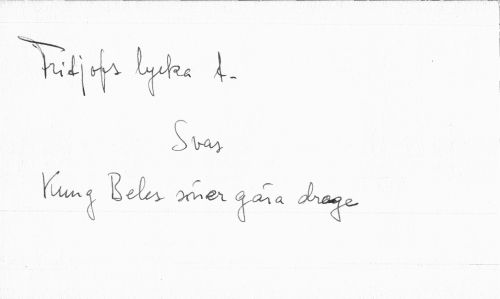 Fridjofs lycka A-
Svas
Kung Beles söner gåia drage